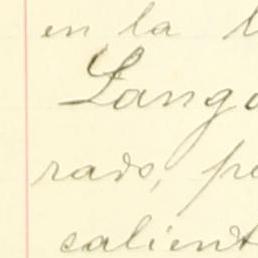 en la
Lango
rado, p
calient